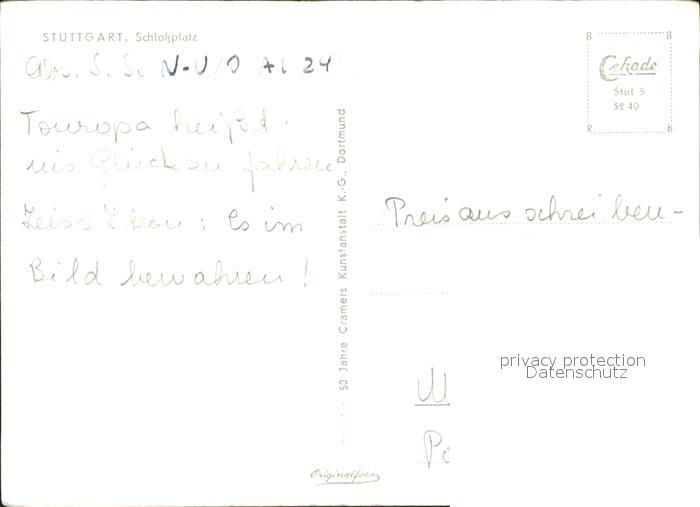 STUTTGART. Schloßplatz
Abs. S. S. N-U/D Al 24
Touropa heißt:
ins Glück zu fahren
Zeiss Ikon: Es im
Bild bewahren!
50 Jahre Cramers Kunstanstalt K.-G., Dortmund
Originalfoto
B B
Cekade
Stut 5
52 40
R B
Preisausschreiben-
privacy protection
Datenschutz
M
Po